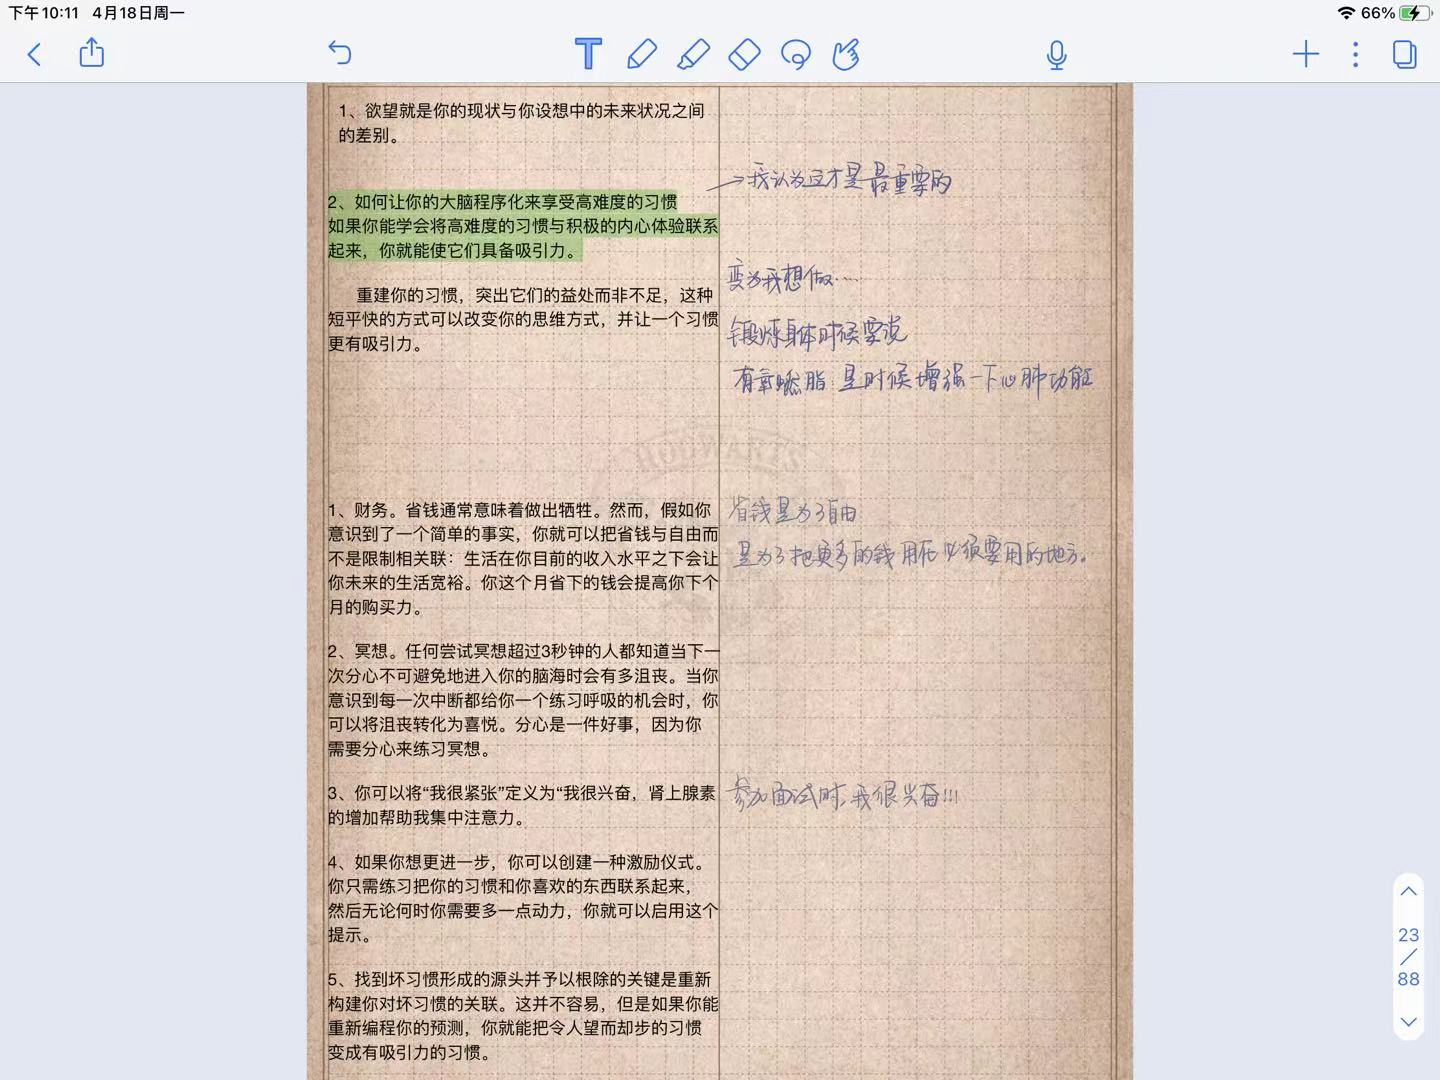 下午10:11 4月18日周一
66%
T
1、欲望就是你的现状与你设想中的未来状况之间
的差别。
→我认为这才是最重要的
2、如何让你的大脑程序化来享受高难度的习惯
如果你能学会将高难度的习惯与积极的内心体验联系
起来，你就能使它们具备吸引力。
变为我想做……
重建你的习惯，突出它们的益处而非不足，这种
短平快的方式可以改变你的思维方式，并让一个习惯
更有吸引力。
锻炼身体时候要说
有氧燃脂：是时候增强一下心肺功能
HOGWARTS
1、财务。省钱通常意味着做出牺牲。然而，假如你
意识到了一个简单的事实，你就可以把省钱与自由而
不是限制相关联：生活在你目前的收入水平之下会让
你未来的生活宽裕。你这个月省下的钱会提高你下个
月的购买力。
省钱是为了自由
是为了把更多的钱用在必须要用的地方。
2、冥想。任何尝试冥想超过3秒钟的人都知道当下一
次分心不可避免地进入你的脑海时会有多沮丧。当你
意识到每一次中断都给你一个练习呼吸的机会时，你
可以将沮丧转化为喜悦。分心是一件好事，因为你
需要分心来练习冥想。
3、你可以将“我很紧张”定义为“我很兴奋，肾上腺素
的增加帮助我集中注意力。
参加面试时，我很兴奋!!!
4、如果你想更进一步，你可以创建一种激励仪式。
你只需练习把你的习惯和你喜欢的东西联系起来，
然后无论何时你需要多一点动力，你就可以启用这个
提示。
5、找到坏习惯形成的源头并予以根除的关键是重新
构建你对坏习惯的关联。这并不容易，但是如果你能
重新编程你的预测，你就能把令人望而却步的习惯
变成有吸引力的习惯。
23
/
88